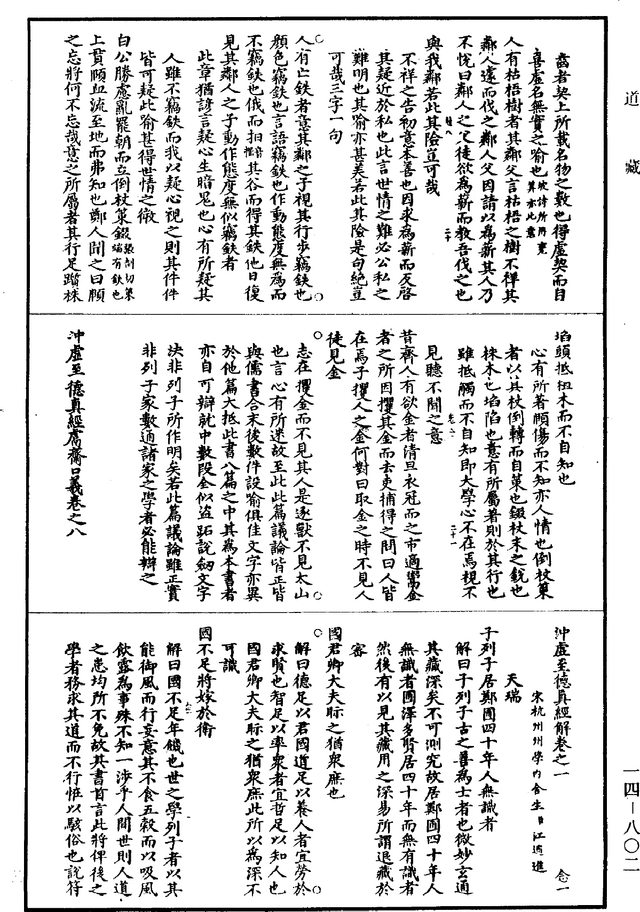 道藏
齒者契上所載名物之數也得虛契而自
喜虛名無實之喻也
人有枯梧樹者其鄰父言枯梧之樹不祥其
鄰人遽而伐之鄰人父因請以為薪其人乃
不悅曰鄰人之父徒欲為薪而教吾伐之也
與我鄰若此其險豈可哉
不祥之告初意本善也因求為薪而反啓
其疑近於私也此言世情之難必公私之
難明也其喻亦甚美若此其險是句絕豈
可哉三字一句
人有亡鈇者意其鄰之子視其行步竊鈇也
顏色竊鈇也言語竊鈇也作動態度無為而
不竊鈇也俄而抇其谷而得其鈇他日復
見其鄰人之子動作態度無似竊鈇者
此章猶諺言疑心生暗鬼也心有所疑其
人雖不竊鈇而我以疑心視之則其件件
皆可疑此喻甚得世情之微
白公勝慮亂罷朝而立倒杖策錣
上貫頤血流至地而弗知也鄭人聞之曰頤
之忘將何不忘哉意之所屬者其行足躓株
埳頭抵植木而不自知也
心有所著頤傷而不知亦人情也倒杖策
者以其杖倒轉而自策也錣杖末之銳也
株木也埳陷也意有所屬著則於其行也
雖抵觸而不自知即大學心不在焉視不
見聽不聞之意
昔齊人有欲金者清旦衣冠而之市適鬻金
者之所因攫其金而去吏捕得之問曰人皆
在焉子攫人之金何對曰取金之時不見人
徒見金
志在攫金而不見其人是逐獸不見太山
也言心有所迷故至此此篇議論皆正皆
與儒書合末後數件設喻俱佳文字亦異
於他篇大抵此書八篇之中其為本書者
亦自可辯就中數段全似盜跖說劒文字
決非列子所作明矣若此篇議論雖正實
非列子家數通諸家之學者必能辯之
沖虛至德真經鬳齋口義卷之八
沖虛至德真經解卷之一
宋杭州州學內舍生臣江遹進
天瑞
子列子居鄭圃四十年人無識者
解曰子列子古之善為士者也微妙玄通
其藏深矣不可測究故居鄭圃四十年人
無識者圃澤多賢居四十年而無有識者
然後有以見其藏用之深易所謂退藏於
密
國君卿大夫眎之猶衆庶也
解曰德足以君國道足以養人者宜勞於
求賢也智足以率衆者宜哲足以知人也
國君卿大夫眎之猶衆庶此所以為深不
可識
國不足將嫁於衛
解曰國不足年饑也世之學列子者以其
能御風而行妄意其不食五穀而以吸風
飲露為事殊不知一涉乎人間世則人道
之患均所不免故其書首言此將俾後之
學者務求其道而不行恠以駭俗也說符
一四－八〇二